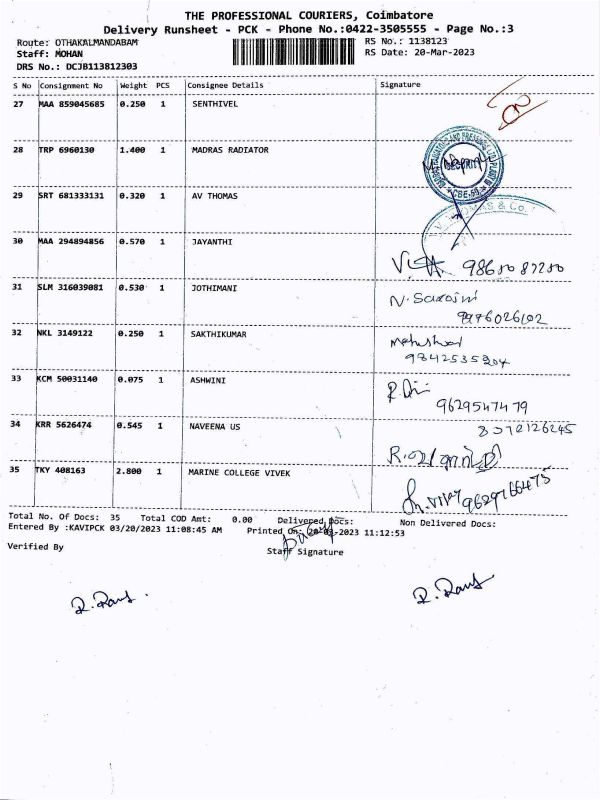 THE PROFESSIONAL COURIERS, Coimbatore
Delivery Runsheet - PCK - Phone No.:0422-3505555 - Page No.:3
Route: OTHAKALMANDABAM RS No.: 1138123
Staff: MOHAN RS Date: 20-Mar-2023
DRS No.: DCJB113812303
S No Consignment No Weight PCS Consignee Details Signature
27 MAA 859045685 0.250 1 SENTHIVEL
28 TRP 6960130 1.400 1 MADRAS RADIATOR
SECURITY
29 SRT 681333131 0.320 1 AV THOMAS
30 MAA 294894856 0.570 1 JAYANTHI
31 SLM 316039081 0.530 1 JOTHIMANI
N. Sarojini
32 NKL 3149122 0.250 1 SAKTHIKUMAR
9842535204
33 KCM 50031140 0.075 1 ASHWINI
9629547479
34 KRR 5626474 0.545 1 NAVEENA US
8072126245
35 TKY 408163 2.800 1 MARINE COLLEGE VIVEK
Total No. Of Docs: 35 Total COD Amt: 0.00 Delivered Docs: Non Delivered Docs:
Entered By :KAVIPCK 03/20/2023 11:08:45 AM Printed On: 20-03-2023 11:12:53
Verified By Staff Signature